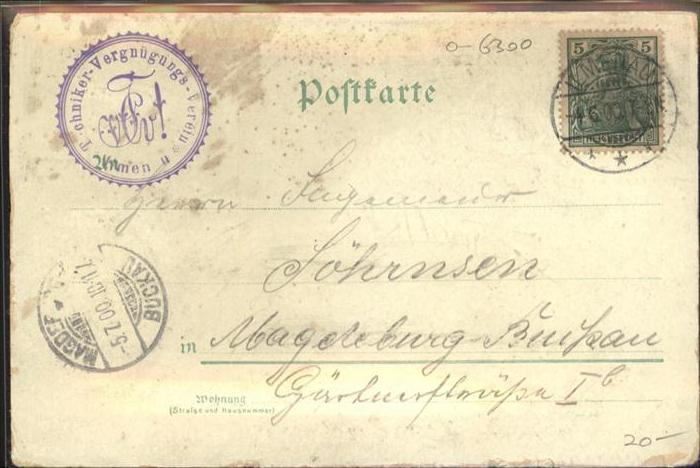 o-6300
Techniker-Vergnügungs-Verein
Ilmenau
Postkarte
5 5
ILMENAU
REICHSPOST
Herrn Ingenieur
Söhrnsen
in Magdeburg-Buckau
MAGDEBURG
BUCKAU
-5.7.00.10-11
Wohnung
(Straße und Hausnummer)
Gärtnerstraße I b
20-